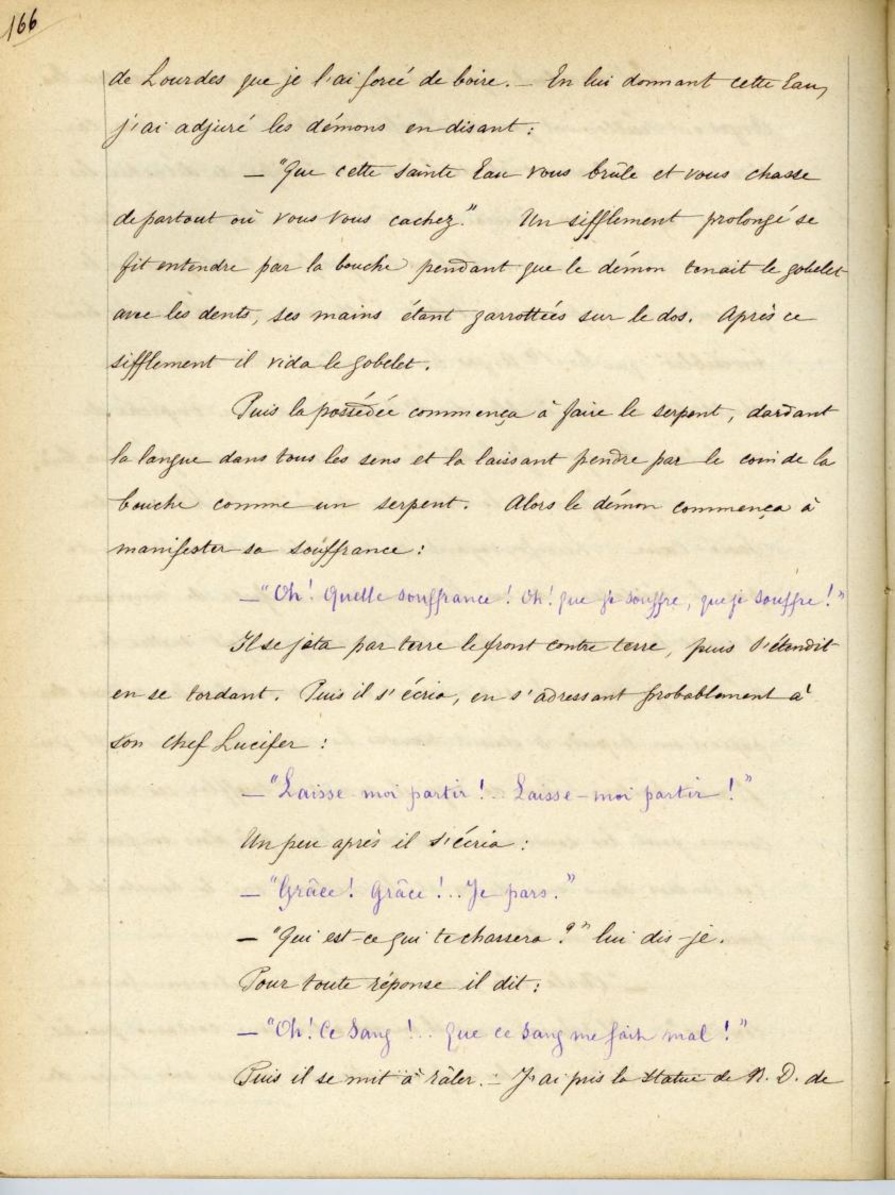 166
de Lourdes que je l'ai forcé de boire. — En lui donnant cette Eau,
j'ai adjuré les démons en disant :
— "Que cette sainte Eau vous brûle et vous chasse
de partout où vous vous cachez." Un sifflement prolongé se
fit entendre par la bouche pendant que le démon tenait le gobelet
avec les dents, ses mains étant garrottées sur le dos. Après ce
sifflement il vida le gobelet.
Puis la possédée commença à faire le serpent, dardant
la langue dans tous les sens et la laissant pendre par le coin de la
bouche comme un serpent. Alors le démon commença à
manifester sa souffrance :
— "Oh! Quelle souffrance! Oh! que je souffre, que je souffre!"
Il se jeta par terre le front contre terre, puis s'étendit
en se tordant. Puis il s'écria, en s'adressant probablement à
son chef Lucifer :
— "Laisse moi partir!.. Laisse-moi partir!"
Un peu après il s'écria :
— "Grâce! Grâce!.. Je pars."
— "Qui est-ce qui te chassera?" lui dis-je.
Pour toute réponse il dit :
— "Oh! Ce Sang!.. que ce Sang me fait mal!"
Puis il se mit à râler. — J'ai pris la statue de N. D. de